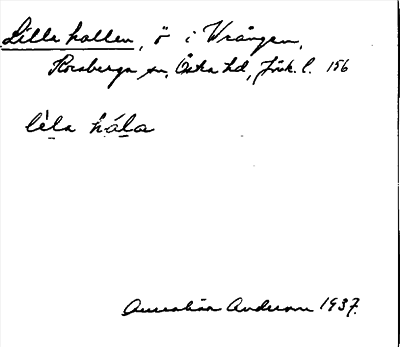 Lilla hallen, ö i Vrången,
Korsberga sn, Östra hd, Jönk. l. 156
lìla hála
Anderson 1937.